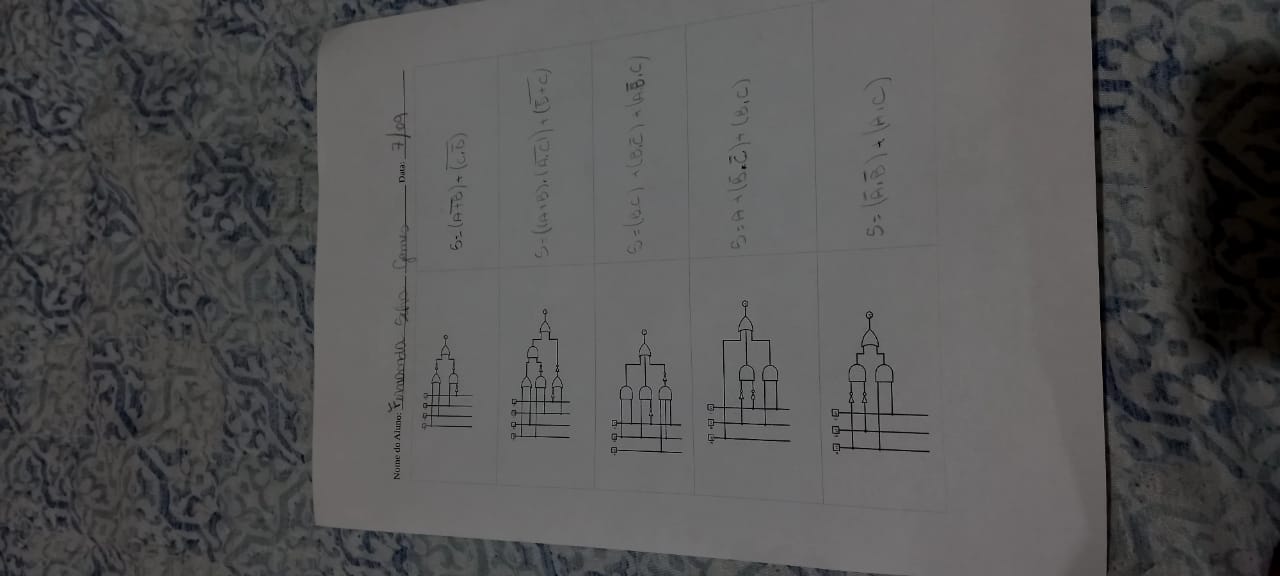 Nome do Aluno: Fernanda Silva Gomes Data: 7/09
S=(A̅+̅B̅)+(C̅.̅D̅)
S=((A+B).(A̅.̅C̅))+(B̅+̅C̅)
S=(B.C)+(B.C̅)+(A.B̅.C)
S=A+(B̅.C̅)+(B.C)
S=(A̅.B̅)+(A.C)